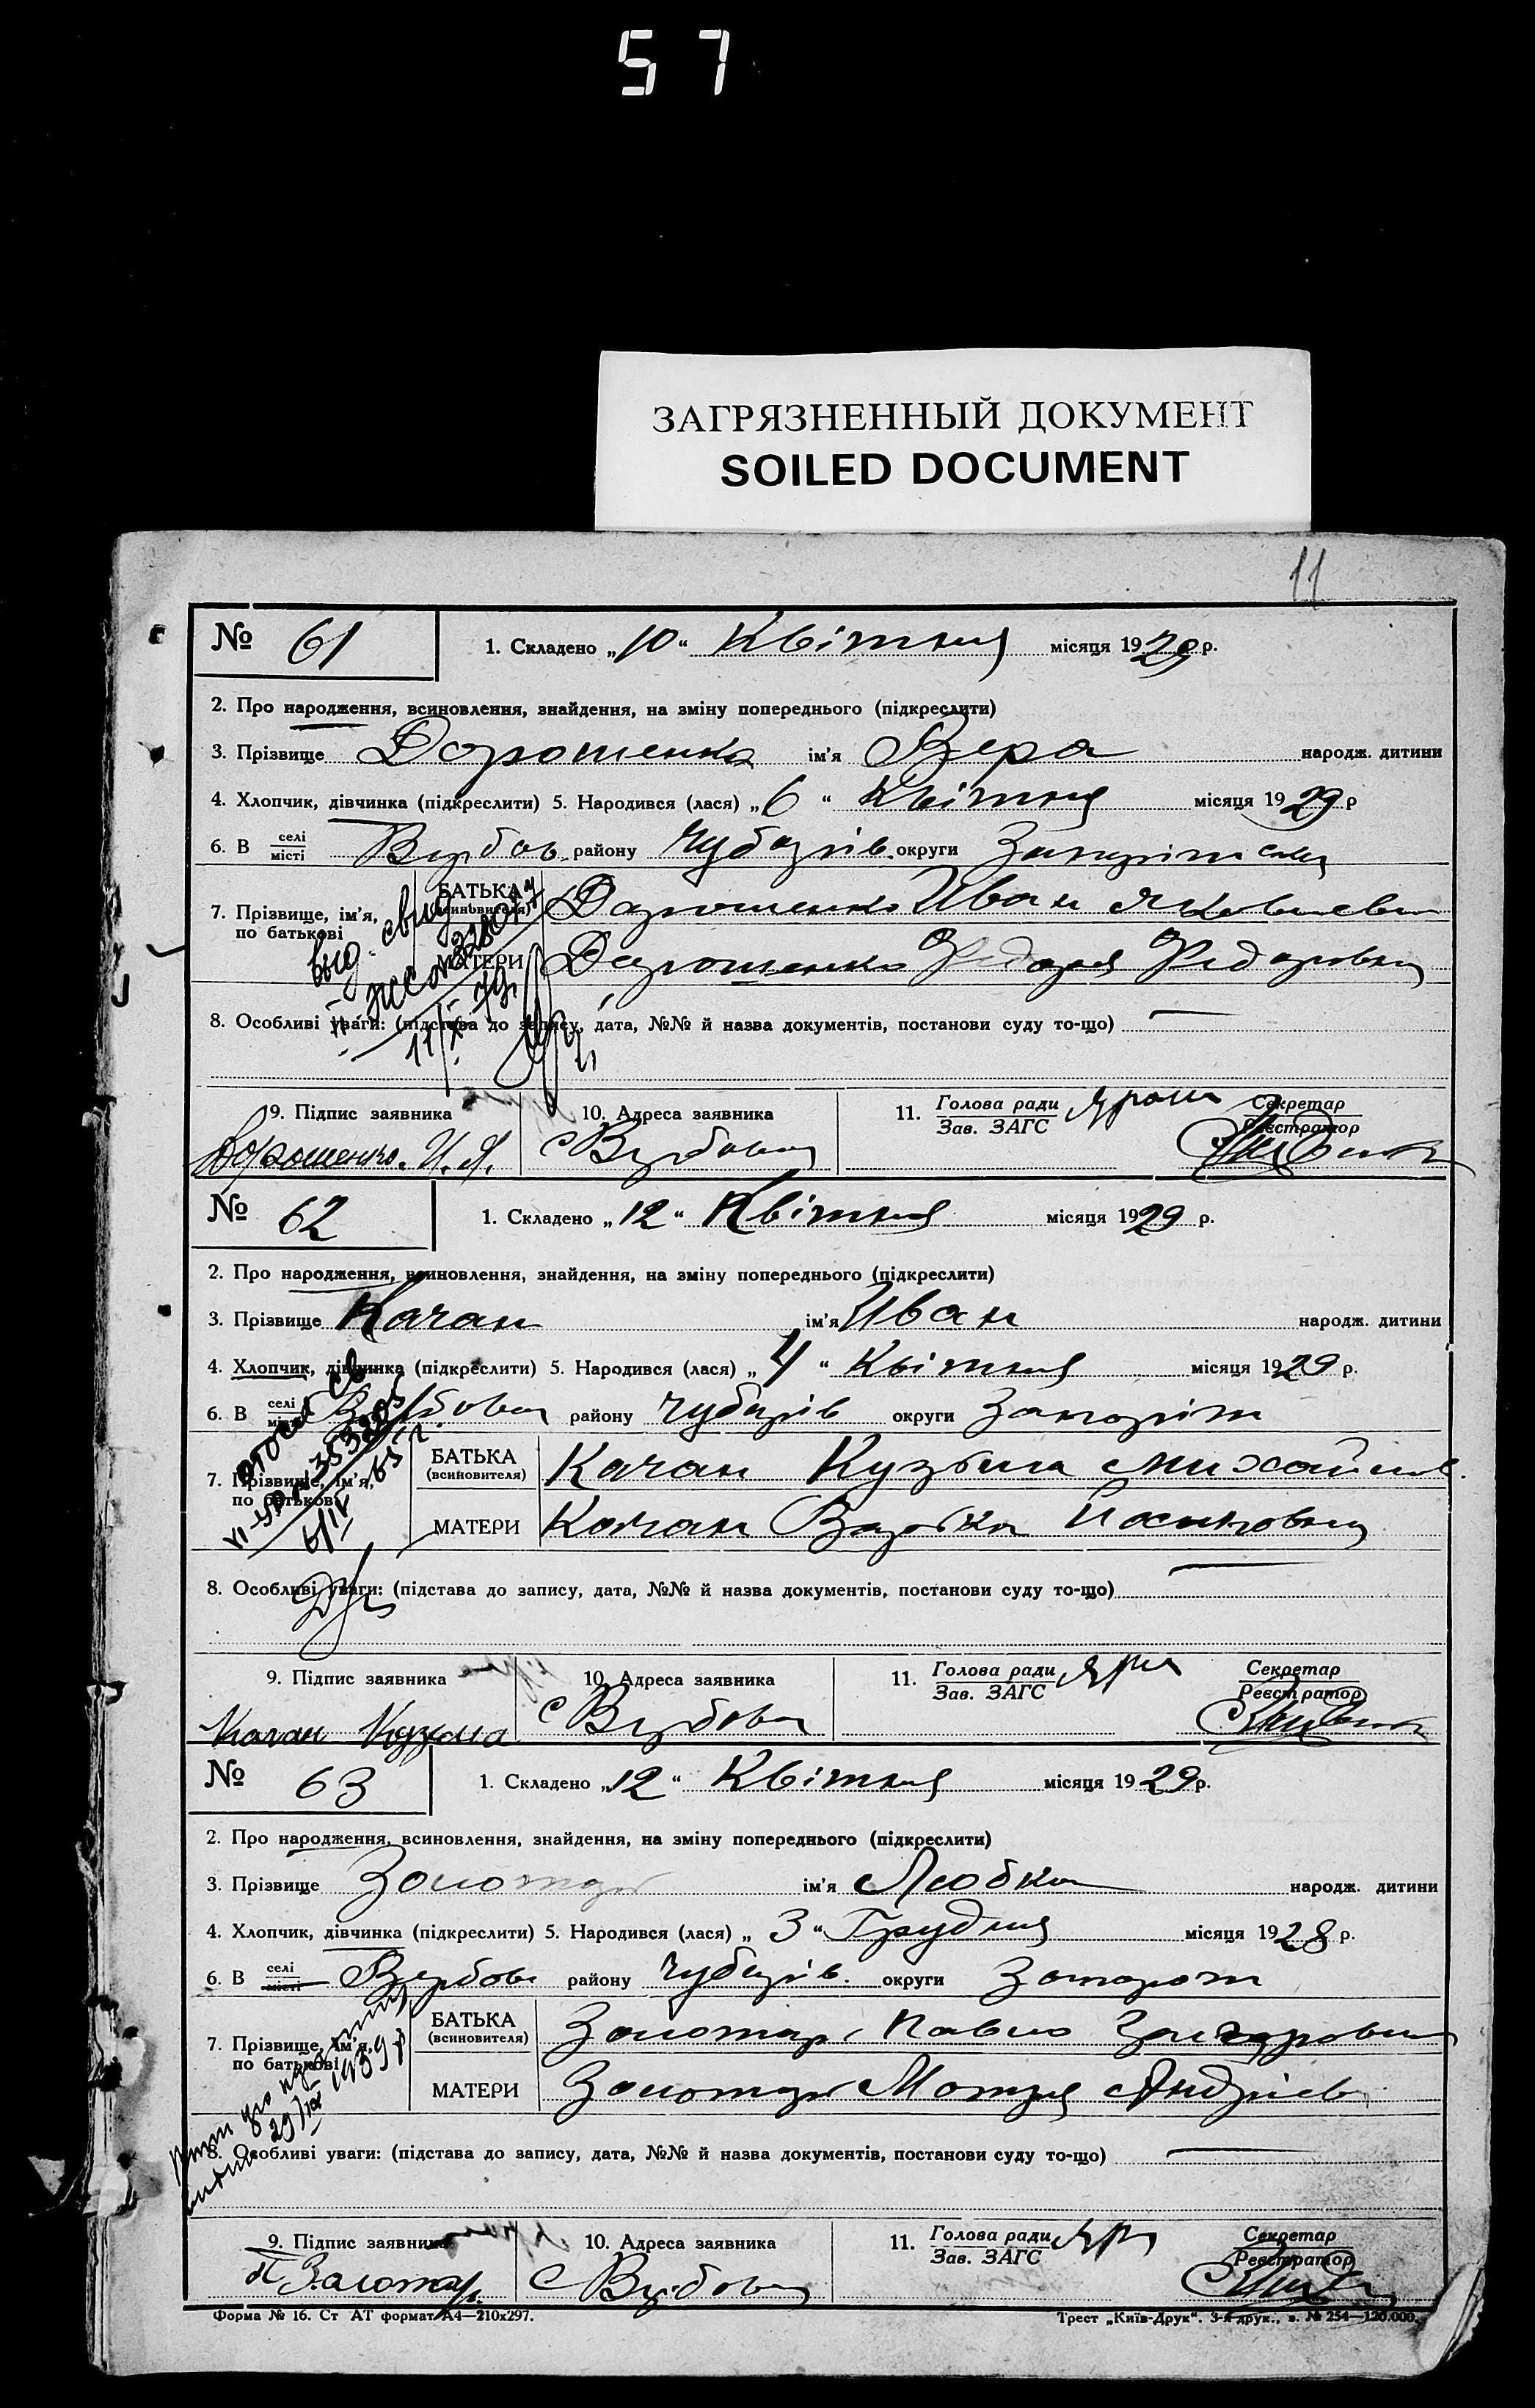 57
ЗАГРЯЗНЕННЫЙ ДОКУМЕНТ
SOILED DOCUMENT
11
№ 61 1. Складено „10“ Квітня місяця 1929 р.
2. Про народження, всиновлення, знайдення, на зміну попереднього (підкреслити)
3. Прізвище Дорошенко ім’я Вера народж. дитини
4. Хлопчик, дівчинка (підкреслити) 5. Народився (лася) „6“ Квітня місяця 1929 р
6. В селі місті Вербов. району Чубарів. округи
7. Прізвище, ім’я, по батькові
БАТЬКА (всиновителя) Дорошенко Иван Яковлевич
МАТЕРИ Дорошенко Федоровна
8. Особливі уваги: (підстава до запису, дата, №№ й назва документів, постанови суду то-що)
9. Підпис заявника 10. Адреса заявника 11. Голова ради Зав. ЗАГС Секретар Реєстратор
Дорошенко. И. Я. с Вербова
№ 62 1. Складено „12“ Квітня місяця 1929 р.
2. Про народження, всиновлення, знайдення, на зміну попереднього (підкреслити)
3. Прізвище Качан ім’я Иван народж. дитини
4. Хлопчик, дівчинка (підкреслити) 5. Народився (лася) „4“ Квітня місяця 1929 р.
6. В селі місті Вербова району Чубарів округи Запоріж
7. Прізвище, ім’я, по батькові
БАТЬКА (всиновителя) Качан Кузьма Михайлов.
МАТЕРИ Качан
8. Особливі уваги: (підстава до запису, дата, №№ й назва документів, постанови суду то-що)
9. Підпис заявника 10. Адреса заявника 11. Голова ради Зав. ЗАГС Секретар Реєстратор
Качан Кузьма с Вербова
№ 63 1. Складено „12“ Квітня місяця 1929 р.
2. Про народження, всиновлення, знайдення, на зміну попереднього (підкреслити)
3. Прізвище Золотар ім’я Любка народж. дитини
4. Хлопчик, дівчинка (підкреслити) 5. Народився (лася) „3“ Грудня місяця 1928 р.
6. В селі місті Вербов району Чубарів. округи Запорож
7. Прізвище, ім’я, по батькові
БАТЬКА (всиновителя) Золотар Павло
МАТЕРИ Золотар Мотря Андріев
8. Особливі уваги: (підстава до запису, дата, №№ й назва документів, постанови суду то-що)
9. Підпис заявника 10. Адреса заявника 11. Голова ради Зав. ЗАГС Секретар Реєстратор
П Золотар. с Вербова
Форма № 16. Ст АТ формат А4—210х297. Трест „Київ-Друк“. 3-я друк., з. № 254—120.000.